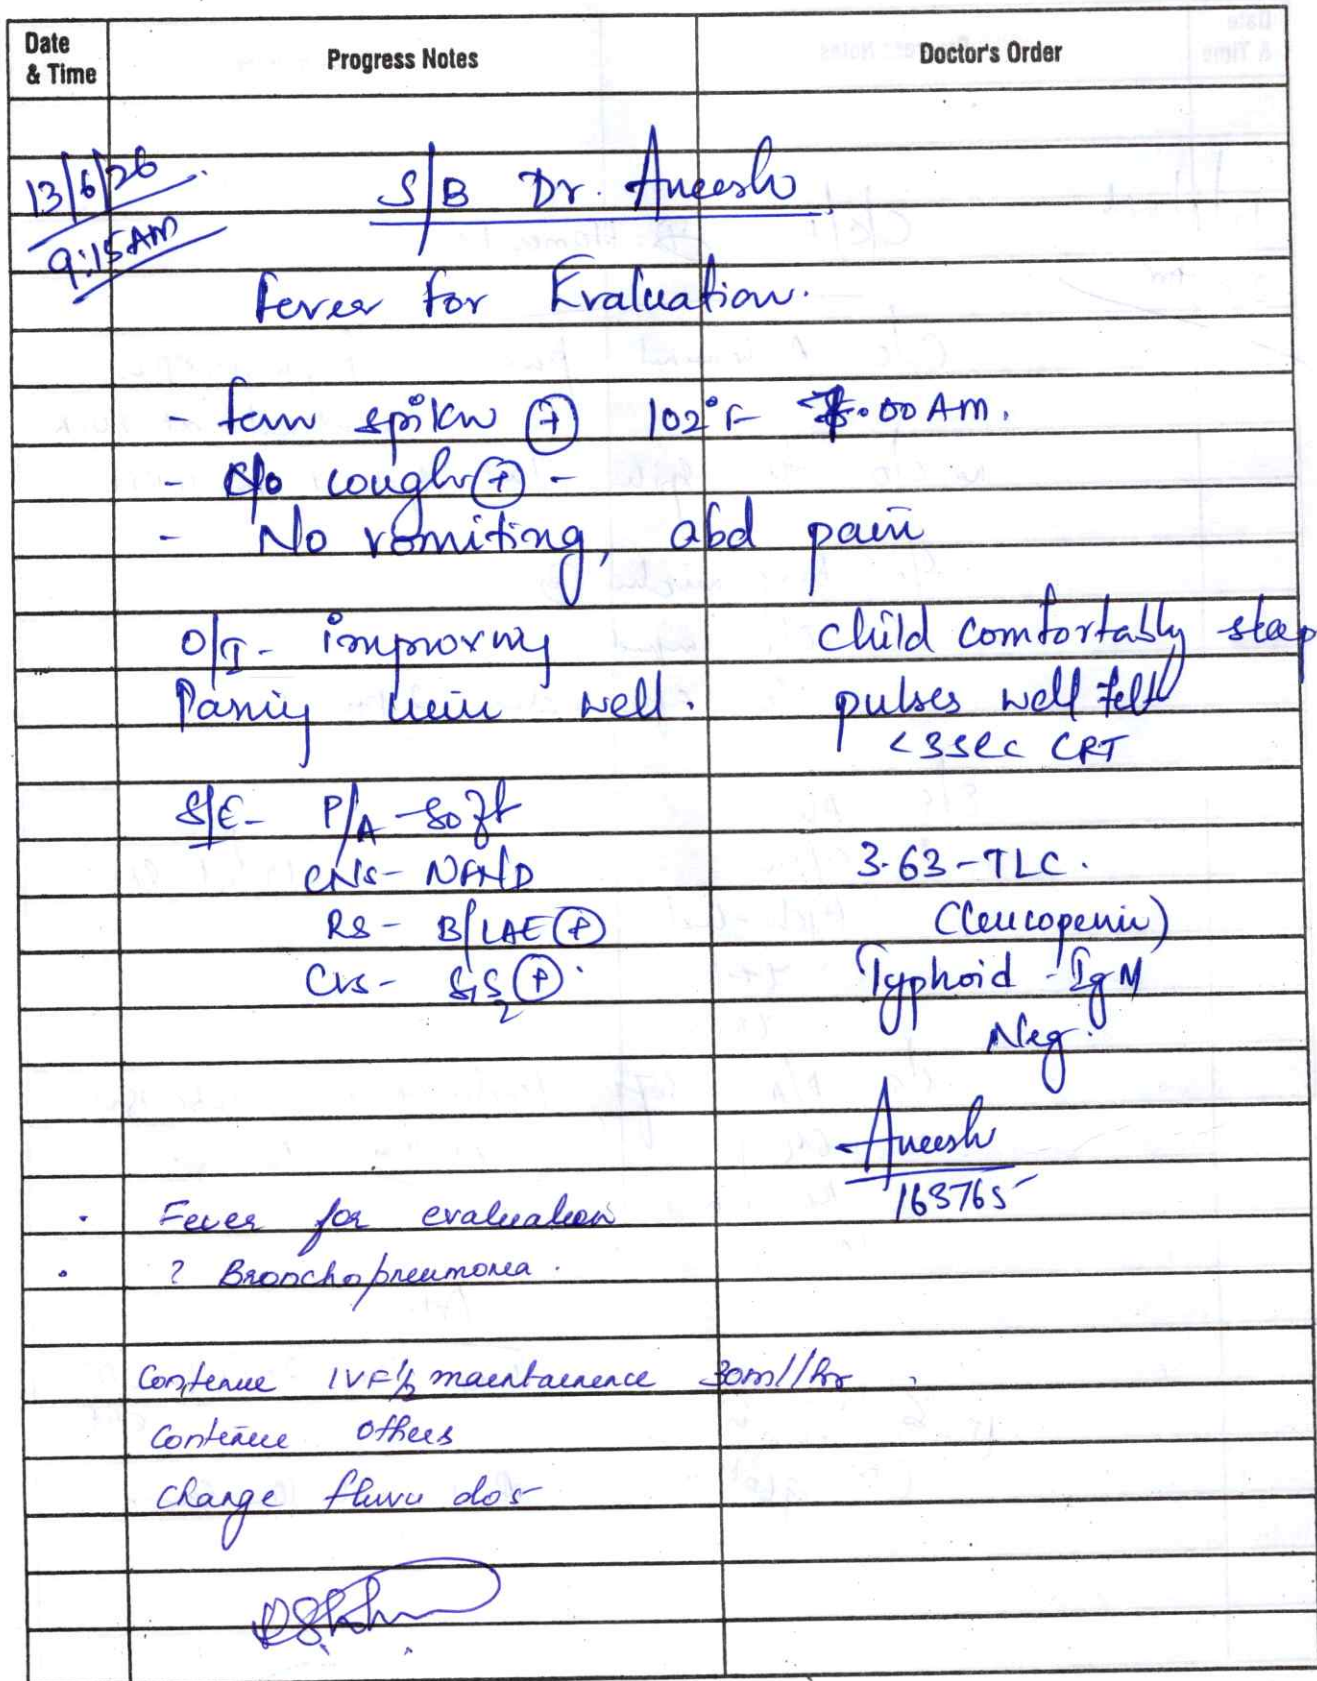 Date & Time
Progress Notes
Doctor's Order
13/6/26
9:15AM
S/B Dr. Aneesh
Fever for Evaluation.
- fever spikes (+) 102°F 7.00 AM.
- C/o cough (+) -
- No vomiting, abd pain
O/I - improving
child comfortably sleep
Passing urine well.
pulses well felt
<3sec CRT
S/E - P/A - soft
CNS - NFND
3.63 - TLC.
RS - B/LAE (+)
(leucopenia)
CVS - S1S2 (+).
Typhoid - IgM
Neg.
Aneesh
163765
. Fever for evaluation
. ? Bronchopneumonia.
Continue IVF 1/2 maintainence 30ml/hr
Continue others
Change fluvir dos